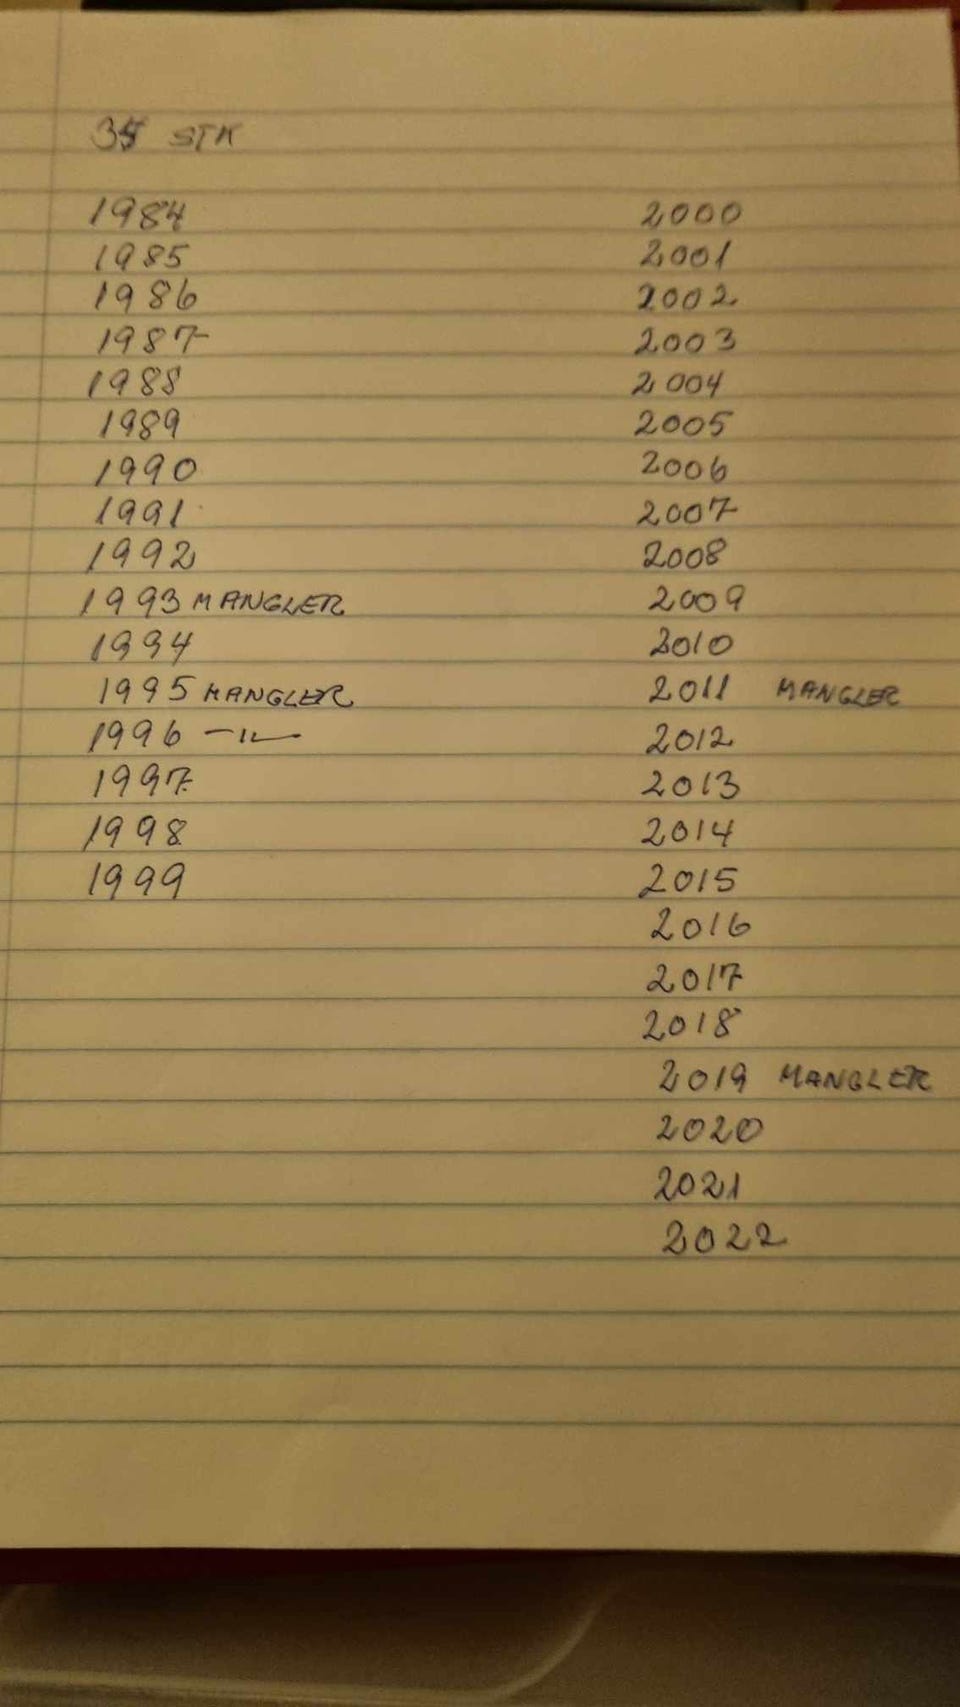 STK
1984
1985
1986
1987
1988
1989
1990
1991
1992
1993 MANGLER
1994
1995 MANGLER
1996 —״—
1997
1998
1999
2000
2001
2002
2003
2004
2005
2006
2007
2008
2009
2010
2011 MANGLER
2012
2013
2014
2015
2016
2017
2018
2019 MANGLER
2020
2021
2022